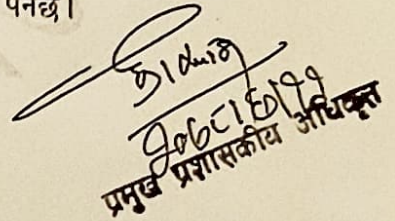 पर्नेछ।
२०८१।६।११
प्रमुख प्रशासकीय अधिकृत